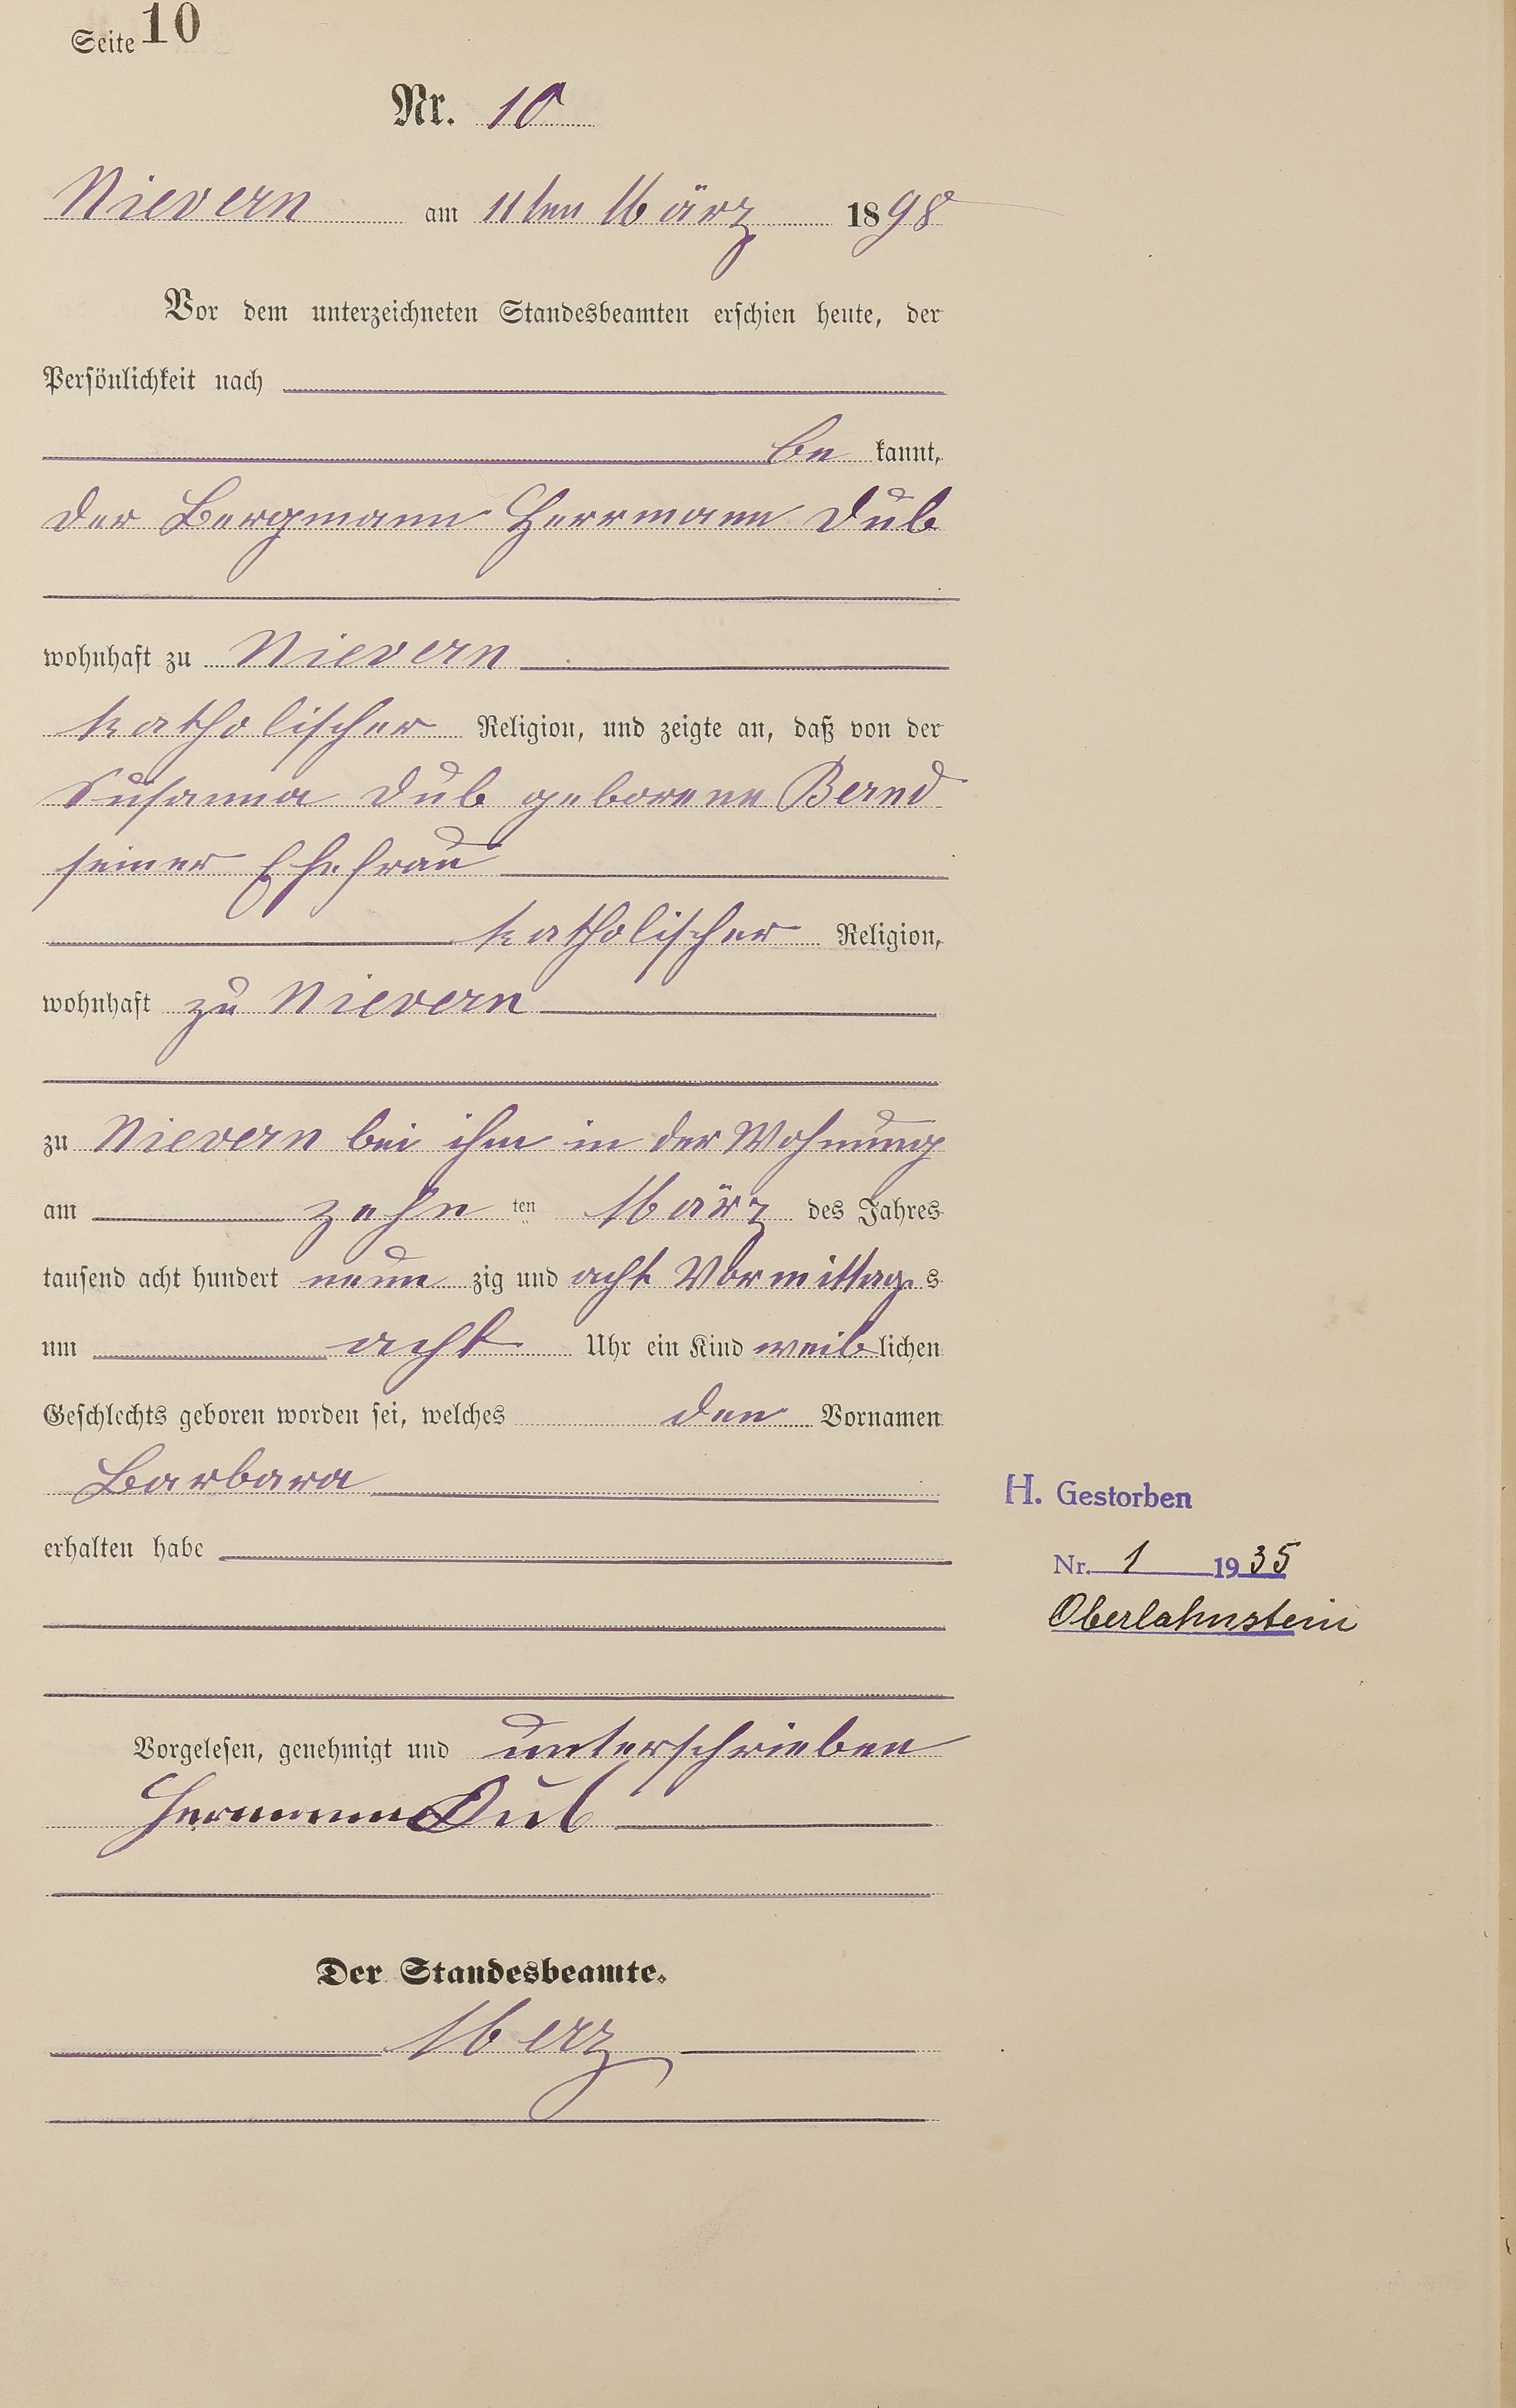 Seite 10
Nr. 10
Nievern am 11ten März 1898
Vor dem unterzeichneten Standesbeamten erschien heute, der
Persönlichkeit nach
be kannt,
der Bergmann Herrmann Dub
wohnhaft zu Nievern
katholischer Religion, und zeigte an, daß von der
Susanna Dub geborene Bernd
seiner Ehefrau
katholischer Religion,
wohnhaft zu Nievern
zu Nievern bei ihm in der Wohnung
am zehn ten März des Jahres
tausend acht hundert neun zig und acht Vormittag s
um acht Uhr ein Kind weiblichen
Geschlechts geboren worden sei, welches den Vornamen
Barbara
erhalten habe
H. Gestorben
Nr. 1 1935
Oberlahnstein
Vorgelesen, genehmigt und unterschrieben
Hermann Dub
Der Standesbeamte.
Merz